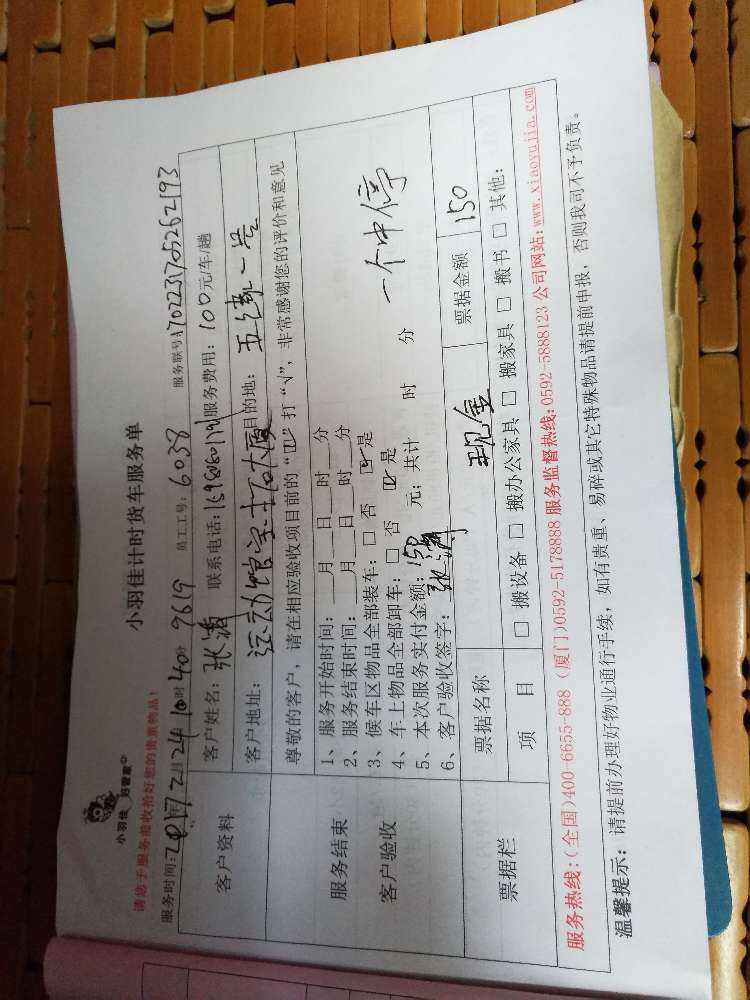 小羽佳 好管家
小羽佳计时货车服务单
请您于服务前收拾好您的贵重物品!
服务时间:2017年2月24 10时40分 9619 员工工号:6038 服务联号A170223170526 2193
客户资料
客户姓名:张涛 联系电话: 服务费用:100元/车/趟
客户地址:运动馆宝拓大厦 目的地:五缘一号
尊敬的客户,请在相应验收项目前的“☑”打“√”,非常感谢您的评价和意见
服务结束
客户验收
1、服务开始时间:__月__日__时__分
2、服务结束时间:__月__日__时__分
3、候车区物品全部装车:□ 否 ☑ 是
4、车上物品全部卸车:□ 否 ☑ 是
5、本次服务实付金额:150 元;共计 时 分 一个中停
6、客户验收签字:张涛
票据栏
票据名称 现金 票据金额 150
项 目 □ 搬设备 □ 搬办公家具 □ 搬家具 □ 搬书 □ 其他:
服务热线:(全国)400-6655-888 (厦门)0592-5178888 服务监督热线:0592-5888123 公司网站:www.xiaoyujia.com
温馨提示:请提前办理好物业通行手续,如有贵重、易碎或其它特殊物品请提前申报,否则我司不予负责。